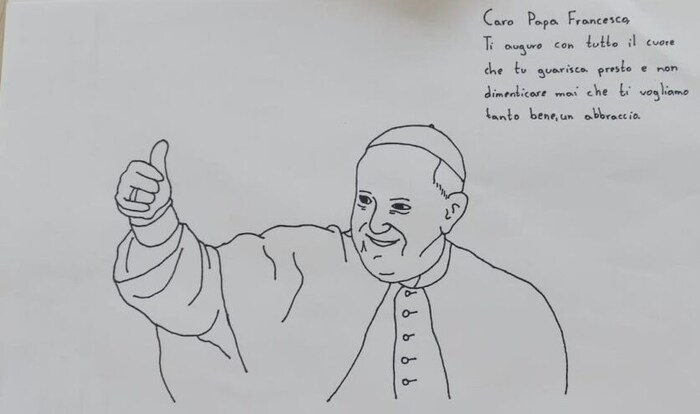 Caro Papa Francesco,
Ti auguro con tutto il cuore
che tu guarisca presto e non
dimenticare mai che ti vogliamo
tanto bene, un abbraccio.